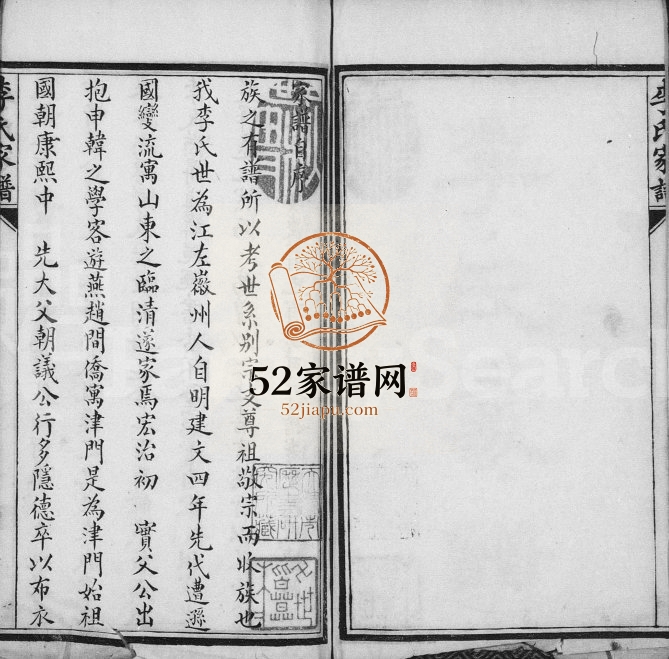 李氏家譜
家譜自序
族之有譜所以考世系別宗支尊祖敬宗而收族也
我李氏世為江左徽州人自明建文四年先代遭遜
國變流寓山東之臨清遂家焉宏治初 實父公出
抱申韓之學客遊燕趙間僑寓津門是為津門始祖
國朝康熙中 先大父朝議公行多隱德卒以布衣
李氏家譜
52家谱网
52jiapu.com